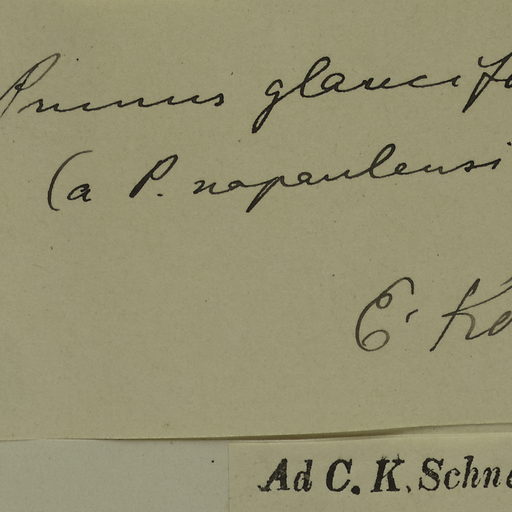 Prunus glaucifo
(a P. napaulensi
E. Ko
Ad C. K. Schne